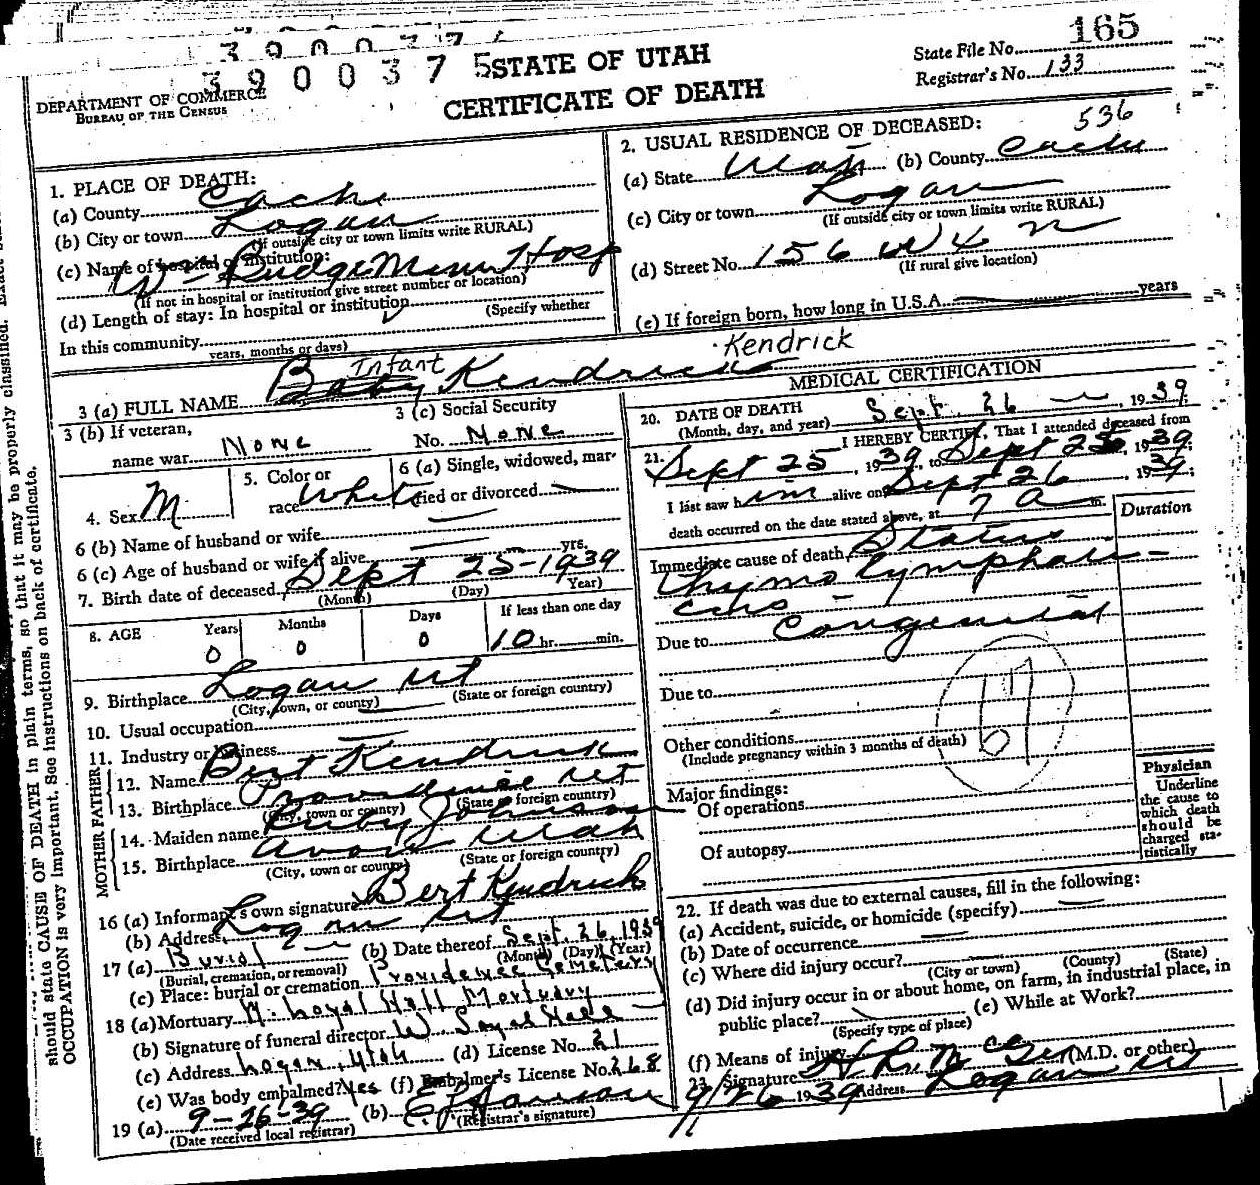 3900375
STATE OF UTAH
CERTIFICATE OF DEATH
DEPARTMENT OF COMMERCE
BUREAU OF THE CENSUS
State File No. 165
Registrar's No. 133
536
1. PLACE OF DEATH:
(a) County Cache
(b) City or town Logan
(If outside city or town limits write RURAL)
(c) Name of hospital or institution:
Wm Budge Mem Hosp
(If not in hospital or institution give street number or location)
(d) Length of stay: In hospital or institution
(Specify whether
In this community
years, months or days)
2. USUAL RESIDENCE OF DECEASED:
(a) State Utah (b) County Cache
(c) City or town Logan
(If outside city or town limits write RURAL)
(d) Street No. 156 W 4 N
(If rural give location)
(e) If foreign born, how long in U.S.A. years
Infant Kendrick
3 (a) FULL NAME Baby Kendrick
3 (b) If veteran,
name war None
3 (c) Social Security
No. None
4. Sex M
5. Color or
race White
6 (a) Single, widowed, mar-
ried or divorced
6 (b) Name of husband or wife
6 (c) Age of husband or wife if alive yrs.
7. Birth date of deceased Sept 25-1939
(Month) (Day) Year)
8. AGE Years Months Days If less than one day
0 0 0 10 hr. min.
9. Birthplace Logan Ut
(City, town, or county) (State or foreign country)
10. Usual occupation
11. Industry or business
FATHER
12. Name Bert Kendrick
13. Birthplace Providence Ut
(City, town or county) (State or foreign country)
MOTHER
14. Maiden name Ruby Johnson
15. Birthplace Avon Utah
(City, town or county) (State or foreign country)
16 (a) Informant's own signature Bert Kendrick
(b) Address Logan Ut
17 (a) Burial (b) Date thereof Sept. 26, 1939
(Burial, cremation, or removal) (Month) (Day) (Year)
(c) Place: burial or cremation Providence Cemetery
18 (a) Mortuary W. Loyal Hall Mortuary
(b) Signature of funeral director W Loyal Hall
(c) Address Logan, Utah (d) License No. 21
(e) Was body embalmed? Yes (f) Embalmer's License No. 268
19 (a) 9-26-39 (b)
(Date received local registrar) (Registrar's signature)
MEDICAL CERTIFICATION
20. DATE OF DEATH Sept. 26, 1939
(Month, day, and year)
21. I HEREBY CERTIFY, That I attended deceased from
Sept 25, 1939, to Sept 1939;
I last saw him alive on Sept 26 1939;
death occurred on the date stated above, at 7 A m.
Duration
Immediate cause of death Status
thymo lymphati-
cus -
Due to Congenital
Due to
67
Other conditions
(Include pregnancy within 3 months of death)
Major findings:
Of operations
Of autopsy
Physician
Underline
the cause to
which death
should be
charged sta-
tistically
22. If death was due to external causes, fill in the following:
(a) Accident, suicide, or homicide (specify)
(b) Date of occurrence
(c) Where did injury occur?
(City or town) (County) (State)
(d) Did injury occur in or about home, on farm, in industrial place, in
public place? (e) While at Work?
(Specify type of place)
(f) Means of injury
23. Signature (M.D. or other)
9/26 1939 Address Logan Ut
should state CAUSE OF DEATH in plain terms, so that it may be properly classified.
OCCUPATION is very important. See instructions on back of certificate.